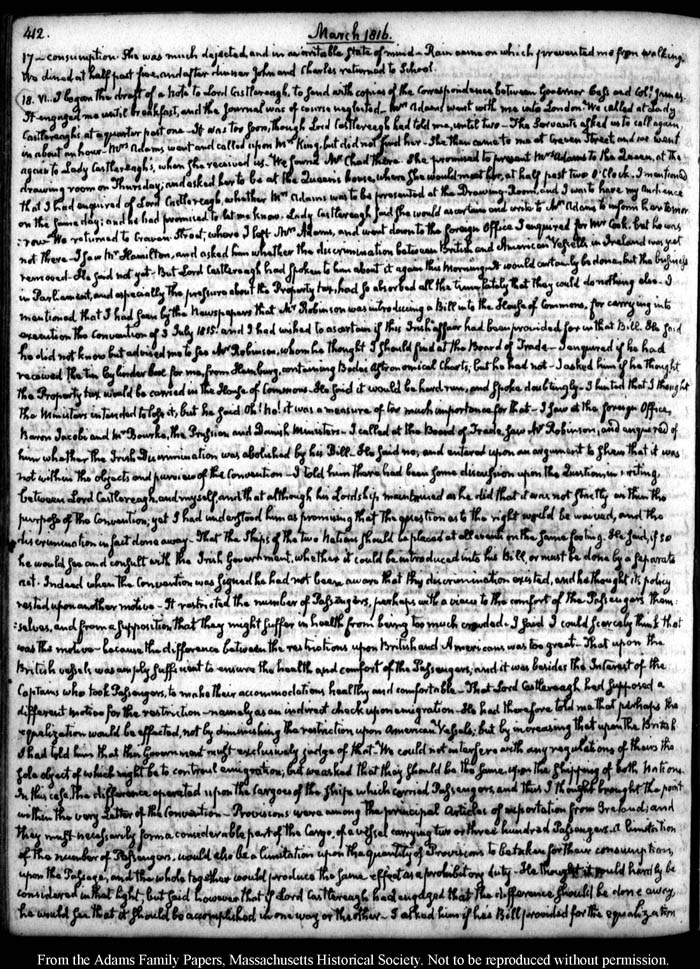 412.
March 1816.
17 — consumption. She was much dejected and in an irritable State of mind — Rain came on which prevented me from walking.
We dined at half past five, and after dinner John and Charles returned to School.
18. VI. I began the draft of a Note to Lord Castlereagh, to send with copies of the Correspondence between Governor Cass and Coll. James.
It engaged me until breakfast, and the Journal was of course neglected. Mrs. Adams went with me into London. We called at Lady
Castlereagh's at a quarter past one — It was too soon, though Lord Castlereagh had told me, until two — The Servants asked us to call again
in about an hour — Mrs. Adams went and called upon Mrs. King, but did not find her. She then came to me at Craven Street, and we went
again to Lady Castlereagh's, when she received us. We found Mr. Chad there. She promised to present Mrs. Adams to the Queen, at the
drawing room on Thursday; and asked her to be at the Queen's house, where she would meet her, at half past two O'Clock. I mentioned
that I had enquired of Lord Castlereagh, whether Mrs. Adams was to be presented at the Drawing-Room, and I was to have my audience
on the same day; and he had promised to let me know. Lady Castlereagh said she would ascertain and write to Mrs. Adams to inform her tomor-
:row — We returned to Craven Street, where I left Mrs. Adams, and went down to the Foreign Office. I enquired for Mr. Cook, but he was
not there — I saw Mr. Hamilton, and asked him whether the discrimination between British and American Vessels in Ireland was yet
removed — He said not yet — But Lord Castlereagh had spoken to him about it again this Morning — It would certainly be done, but the business
in Parliament, and especially the pressure about the Property tax, had so absorbed all the time lately that they could do nothing else — I
mentioned that I had seen by the Newspapers that Mr. Robinson was introducing a Bill into the House of Commons, for carrying into
execution the Convention of 3 July 1815. and I had wished to ascertain if this Irish affair had been provided for in that Bill. He said
he did not know but advised me to see Mr. Robinson, whom he thought I should find at the Board of Trade — I enquired if he had
received the tin Cylinder box for me, from Hamburg, containing Bode's Astronomical Charts; but he had not — I asked him if he thought
the Property tax would be carried in the House of Commons — He said it would be hard run, and spoke doubtingly — I hinted that I thought
the Ministers intended to lose it, but he said Oh! No! it was a measure of too much importance for that — I saw at the Foreign Office,
Baron Jacobi and Mr. Bourke, the Prussian and Danish Ministers — I called at the Board of Trade, saw Mr. Robinson, and enquired of
him whether the Irish Discrimination was abolished by his Bill — He said no; and entered upon an argument to shew that it was
not within the objects and purview of the Convention — I told him there had been some discussion upon the Question, in writing
between Lord Castlereagh, and myself, and that although his Lordship maintained as he did that it was not strictly within the
purpose of the Convention; yet I had understood him as promising that the question as to the right would be waived, and the
discrimination in fact done away. That the Ships of the two Nations should be placed at all events on the same footing. He said, if so
he would see and consult with the Irish Government, whether it could be introduced into his Bill, or must be done by a separate
act. Indeed when the Convention was signed he had not been aware that this discrimination existed, and he thought its policy
rested upon another motive — It restricted the number of Passengers, perhaps with a view to the comfort of the Passengers them-
:selves, and from a supposition, that they might suffer in health from being too much crowded — I said I could scarcely think that
was the motive — because the difference between the restrictions upon British and Americans was too great — That upon the
British vessels was amply sufficient to ensure the health and comfort of the Passengers; and it was besides the Interest of the
Captains who took Passengers, to make their accommodations healthy and comfortable — That Lord Castlereagh had supposed a
different motive for the restriction — namely as an indirect check upon emigration — He had therefore told me that perhaps the
equalization would be effected, not by diminishing the restriction upon American Vessels; but by increasing that upon the British
I had told him that this Government must exclusively judge of that — We could not interfere with any regulations of theirs the
sole object of which might be to controul emigration; but we asked that they should be the same, upon the Shipping of both Nations.
In this case, the difference operated upon the Cargoes of the Ships which carried Passengers, and thus I thought brought the point
within the very Letter of the Convention — Provisions were among the principal Articles of exportation from Ireland; and
they must necessarily form a considerable part of the Cargo, of a vessel carrying two or three hundred Passengers. A limitation
of the number of Passengers, would also be a limitation upon the quantity of Provisions to be taken for their consumption,
upon the Passage, and the whole together would produce the same effect as a prohibitory duty — He thought it could hardly be
considered in that light, but said however that if Lord Castlereagh had engaged that the difference should be done away,
he would see that it should be accomplished in one way or the other — I asked him if his Bill provided for the equalization
From the Adams Family Papers, Massachusetts Historical Society. Not to be reproduced without permission.